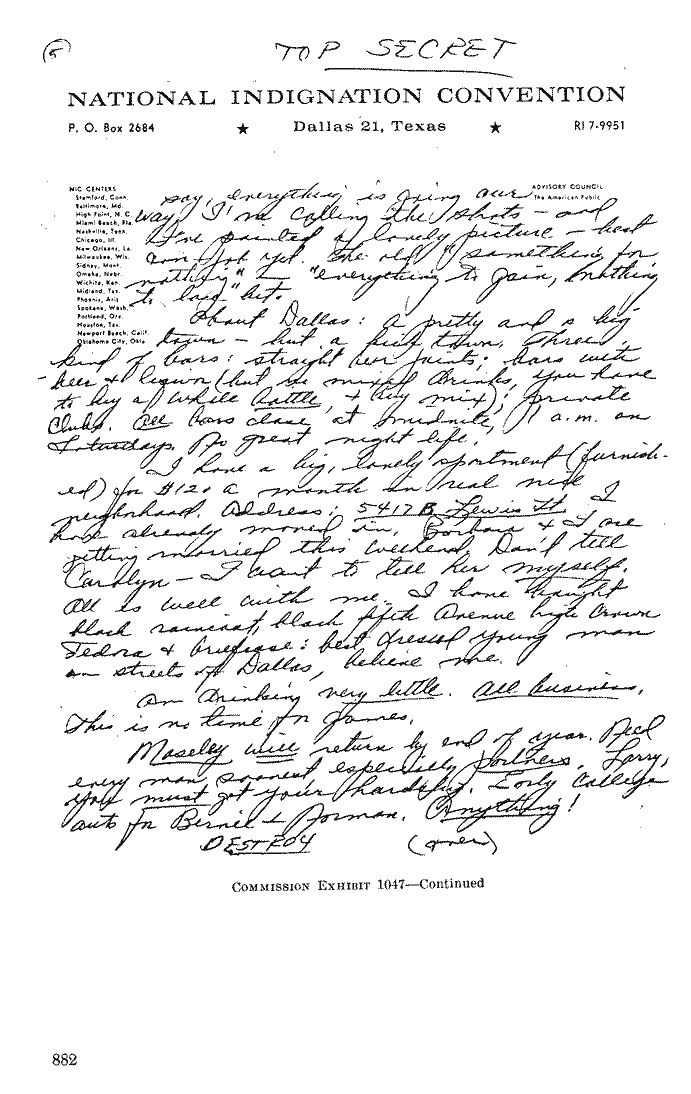 5
TOP SECRET
NATIONAL INDIGNATION CONVENTION
P. O. Box 2684 ★ Dallas 21, Texas ★ RI 7-9951
NIC CENTERS
Stamford, Conn.
Baltimore, Md.
High Point, N. C.
Miami Beach, Fla.
Nashville, Tenn.
Chicago, Ill.
New Orleans, La.
Milwaukee, Wis.
Sidney, Mont.
Omaha, Nebr.
Wichita, Kan.
Midland, Tex.
Phoenix, Ariz
Spokane, Wash.
Portland, Ore.
Houston, Tex.
Newport Beach, Calif.
Oklahoma City, Okla
ADVISORY COUNCIL
The American Public
say, everything is going our
way, I'm calling the shots — and
I've painted a lovely picture — best
con job yet. The old "something for
nothing" & "everything to gain, nothing
to lose" bit.
About Dallas: a pretty and a big
town — but a hick town. Three
kind of bars: straight beer joints; bars with
beer & liquor (but no mixed drinks, you have
to buy a whole bottle, & buy mix); private
clubs. All bars close at midnite, 1 a.m. on
Saturdays. No great night life.
I have a big, lovely apartment (furnish-
ed) for $120 a month in real nice
neighborhood. Address: 5417 B Lewis St. I
have already moved in. Barbara & I are
getting married this weekend. Don't tell
Carolyn — I want to tell her myself.
All is well with me. I have bought
black raincoat, black fifth Avenue high crown
Fedora & briefcase: best dressed young man
on streets of Dallas, believe me.
Am drinking very little. All business.
This is no time for games.
Moseley will return by end of year. Need
every man soonest especially partners. Larry,
you must get your hardship. Early college
outs for Bernie & Norman. Anything!
DESTROY (over)
COMMISSION EXHIBIT 1047—Continued
882